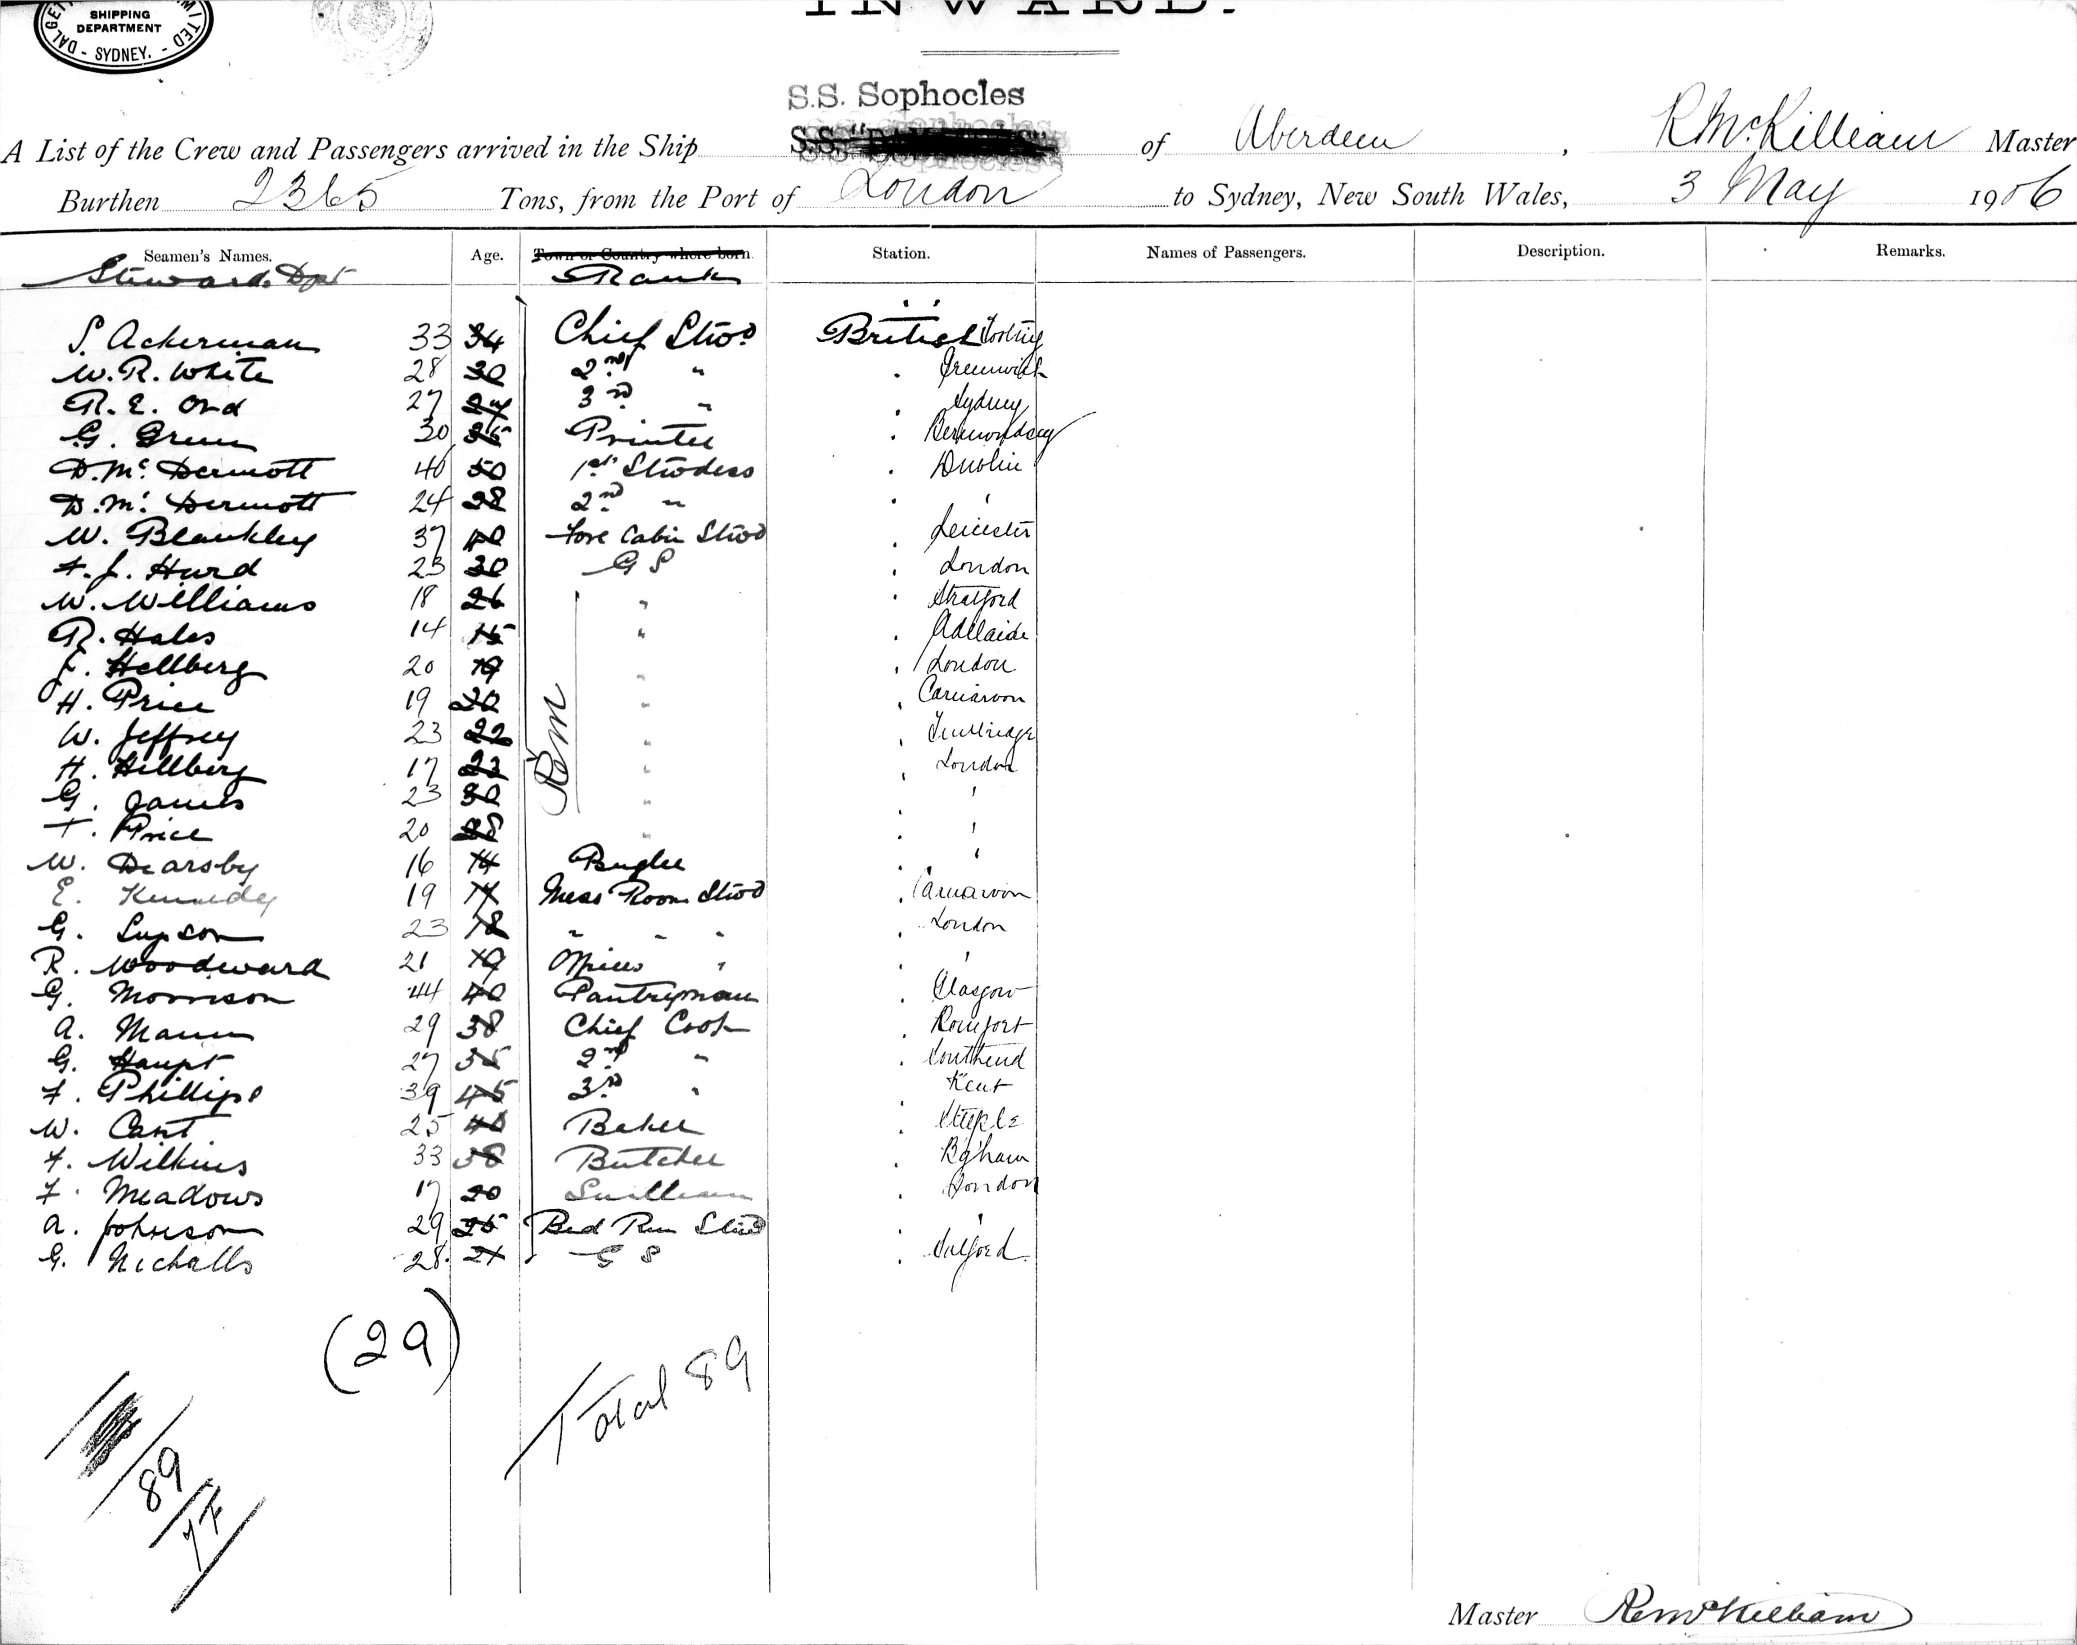 SHIPPING
DEPARTMENT
SYDNEY.
INWARD.
S.S. Sophocles
A List of the Crew and Passengers arrived in the Ship of Aberdeen, R McKilliam Master
Burthen 2365 Tons, from the Port of London to Sydney, New South Wales, 3 May 1906
Seamen's Names. Age. Town or Country where born. Station. Names of Passengers. Description. Remarks.
Steward Dpt Rank
S. Ackerman 33 34 Chief Stwd British Tooting
W. R. White 28 30 2nd " . Greenwich
R. E. Ord 27 24 3rd " . Sydney
G. Green 30 35 Printer . Bermondsey
D. Mc Dermott 40 50 1st Stwdess . Dublin
D. Mc Dermott 24 28 2nd " . '
W. Blankley 37 40 Fore Cabin Stwd . Leicester
F. J. Hurd 23 30 G S . London
W. Williams 18 26 " . Stratford
R. Hales 14 15 " . Adelaide
Hellberg 20 19 " . London
H. Price 19 20 " . Carnarvon
W. Jeffrey 23 22 " .
H. Hellberg 17 23 " . London
G. James 23 30 " . '
T. Price 20 28 " . '
W. Dearsby 16 14 Bugler . '
E. Kennedy 19 Mess Room Stwd . Carnarvon
G. Lupson 23 18 " " " . London
R. Woodward 21 19 Officers " . '
G. Morrison 44 40 Pantryman . Glasgow
A. Mann 29 38 Chief Cook . Romfort
G. Haupt 27 35 2nd " . Southend
F. Phillips 39 45 3rd " Kent
W. Cant 25 40 Baker . Steeple
F. Wilkins 33 38 Butcher . B'gham
F. Meadows 17 20 Scullman . London
A. Johnson 29 25 Bed Rm Stwd . '
G. Nicholls 28 21 G S . Salford
(29)
Total 89
89
Master McKilliam